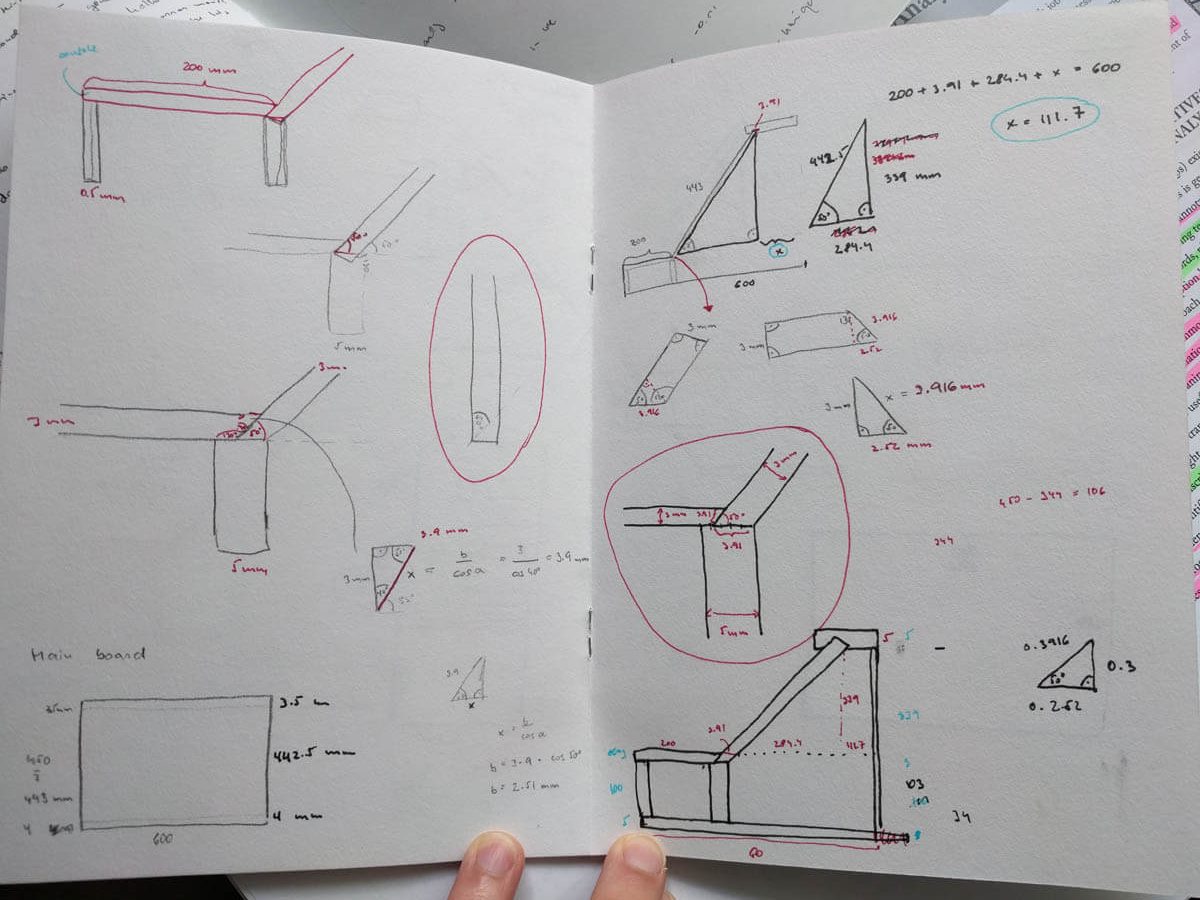 double
200 mm
0.5 mm
50°
5 mm
3 mm
50°
5 mm
3.9 mm
3 mm
x = b/cos α = 3/cos 40° = 3.9 mm
40°
50°
Main board
35mm
3.5 m
450
442.5 mm
443 mm
4 mm
600
3.9
x
x = b/cos α
b = 3.9 · cos 50°
b = 2.51 mm
200 + 3.91 + 284.4 + x = 600
x = 111.7
3.91
442.5
339 mm
50°
284.4
443
200
x
600
3 mm
3.916
3 mm
3.916
2.52
3 mm
x = 3.916 mm
50°
2.52 mm
450 - 344 = 106
344
3 mm
3 mm
3.91
50°
3.91
5 mm
5
5
339
339
3.91
200
284.4
100
5
3
103
34
60
0.3916
0.3
50°
0.252